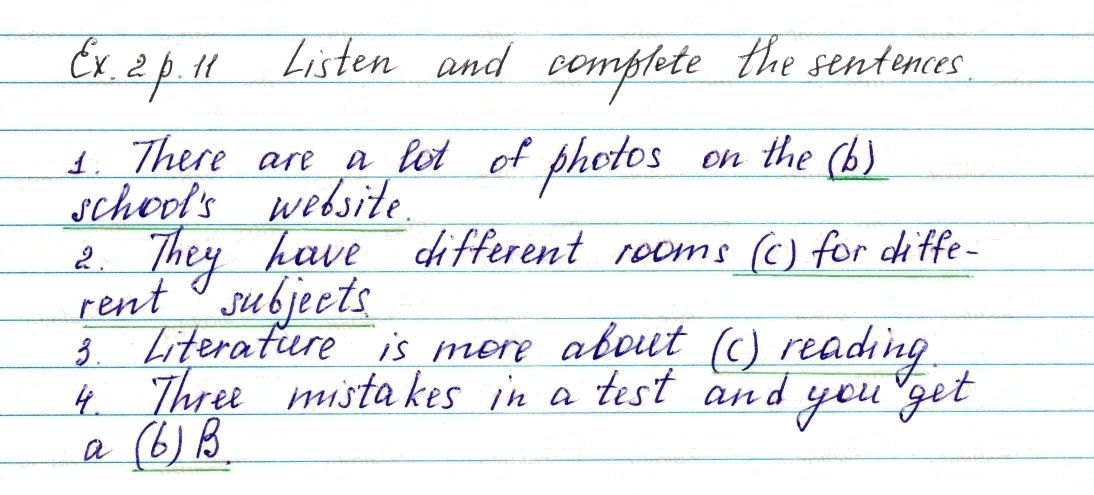 Ex. 2 p. 11 Listen and complete the sentences.
1. There are a lot of photos on the (b)
school's website.
2. They have different rooms (c) for diffe-
rent subjects.
3. Literature is more about (c) reading.
4. Three mistakes in a test and you get
a (b) B.